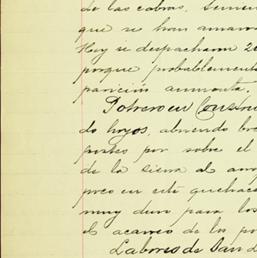 de las cabras. Semen
que se han amarra
Hoy se despacharon 20
porque probablemente
parición aumenta.
Potrero en Constru
do hoyos, abriendo bre
postes por sobre el
de la sierra al arro
preo en este quehace
muy duro para los
el acarreo de los po
Labores de San d